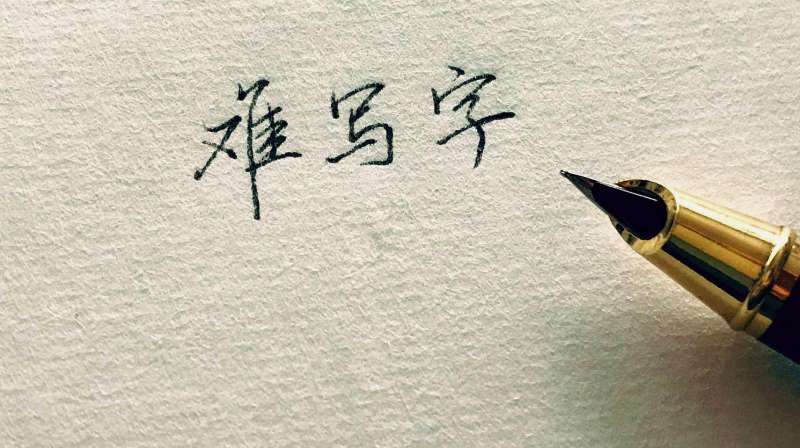 难写字